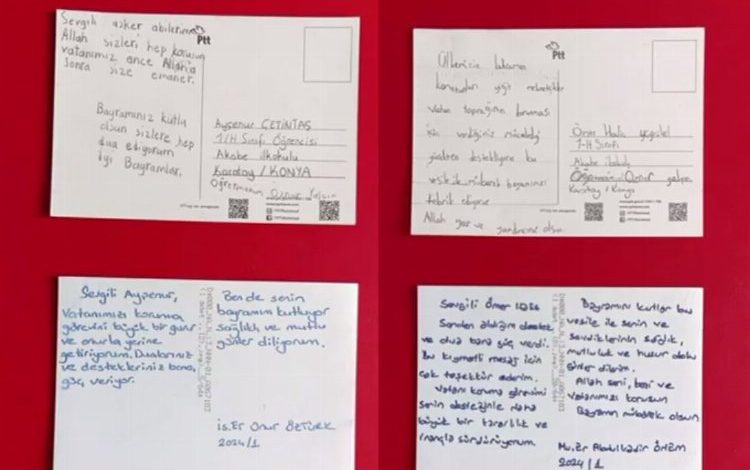 Sevgili asker abilerim
Allah sizleri hep korusun
vatanımız önce Allah'a
sonra size emanet.
Bayramınız kutlu
olsun sizlere hep
dua ediyorum
İyi Bayramlar.
Ptt
Ayşenur ÇETİNTAŞ
1/H Sınıfı Öğrencisi
Akabe ilkokulu
Karatay / KONYA
Öğretmenim
Ptt
Ülkemizin
vatan toprağının
için verdiğiniz mücadeleyi
destekliyor bu
vesile mübarek bayramınızı
tebrik ediyor
Allah yar ve yardımcınız olsun.
Ömer Halis
1-H Sınıfı
Akabe ilkokulu
Karatay / Konya
Sevgili Ayşenur,
Vatanımızı koruma
görevini büyük bir gurur
ve onurla yerine
getiriyorum. Dualarınız
ve destekleriniz bana,
güç veriyor.
Ben de senin
bayramını kutluyor
sağlıklı ve mutlu
günler diliyorum.
is. Er Onur ÖZTÜRK
2024/1
Sevgili Ömer
Senden aldığım destek
ve dua bana güç verdi.
Bu kıymetli mesaj için
çok teşekkür ederim.
Vatanı koruma görevimi
senin desteğinle daha
büyük bir kararlılık ve
inançla sürdürüyorum.
Bayramını kutlar bu
vesile ile senin ve
sevdiklerinin sağlık,
mutluluk ve huzur dolu
günler dilerim.
Allah seni, bizi ve
vatanımızı korusun
Bayramın mübarek olsun
Mu. Er Abdulkadir
2024/1